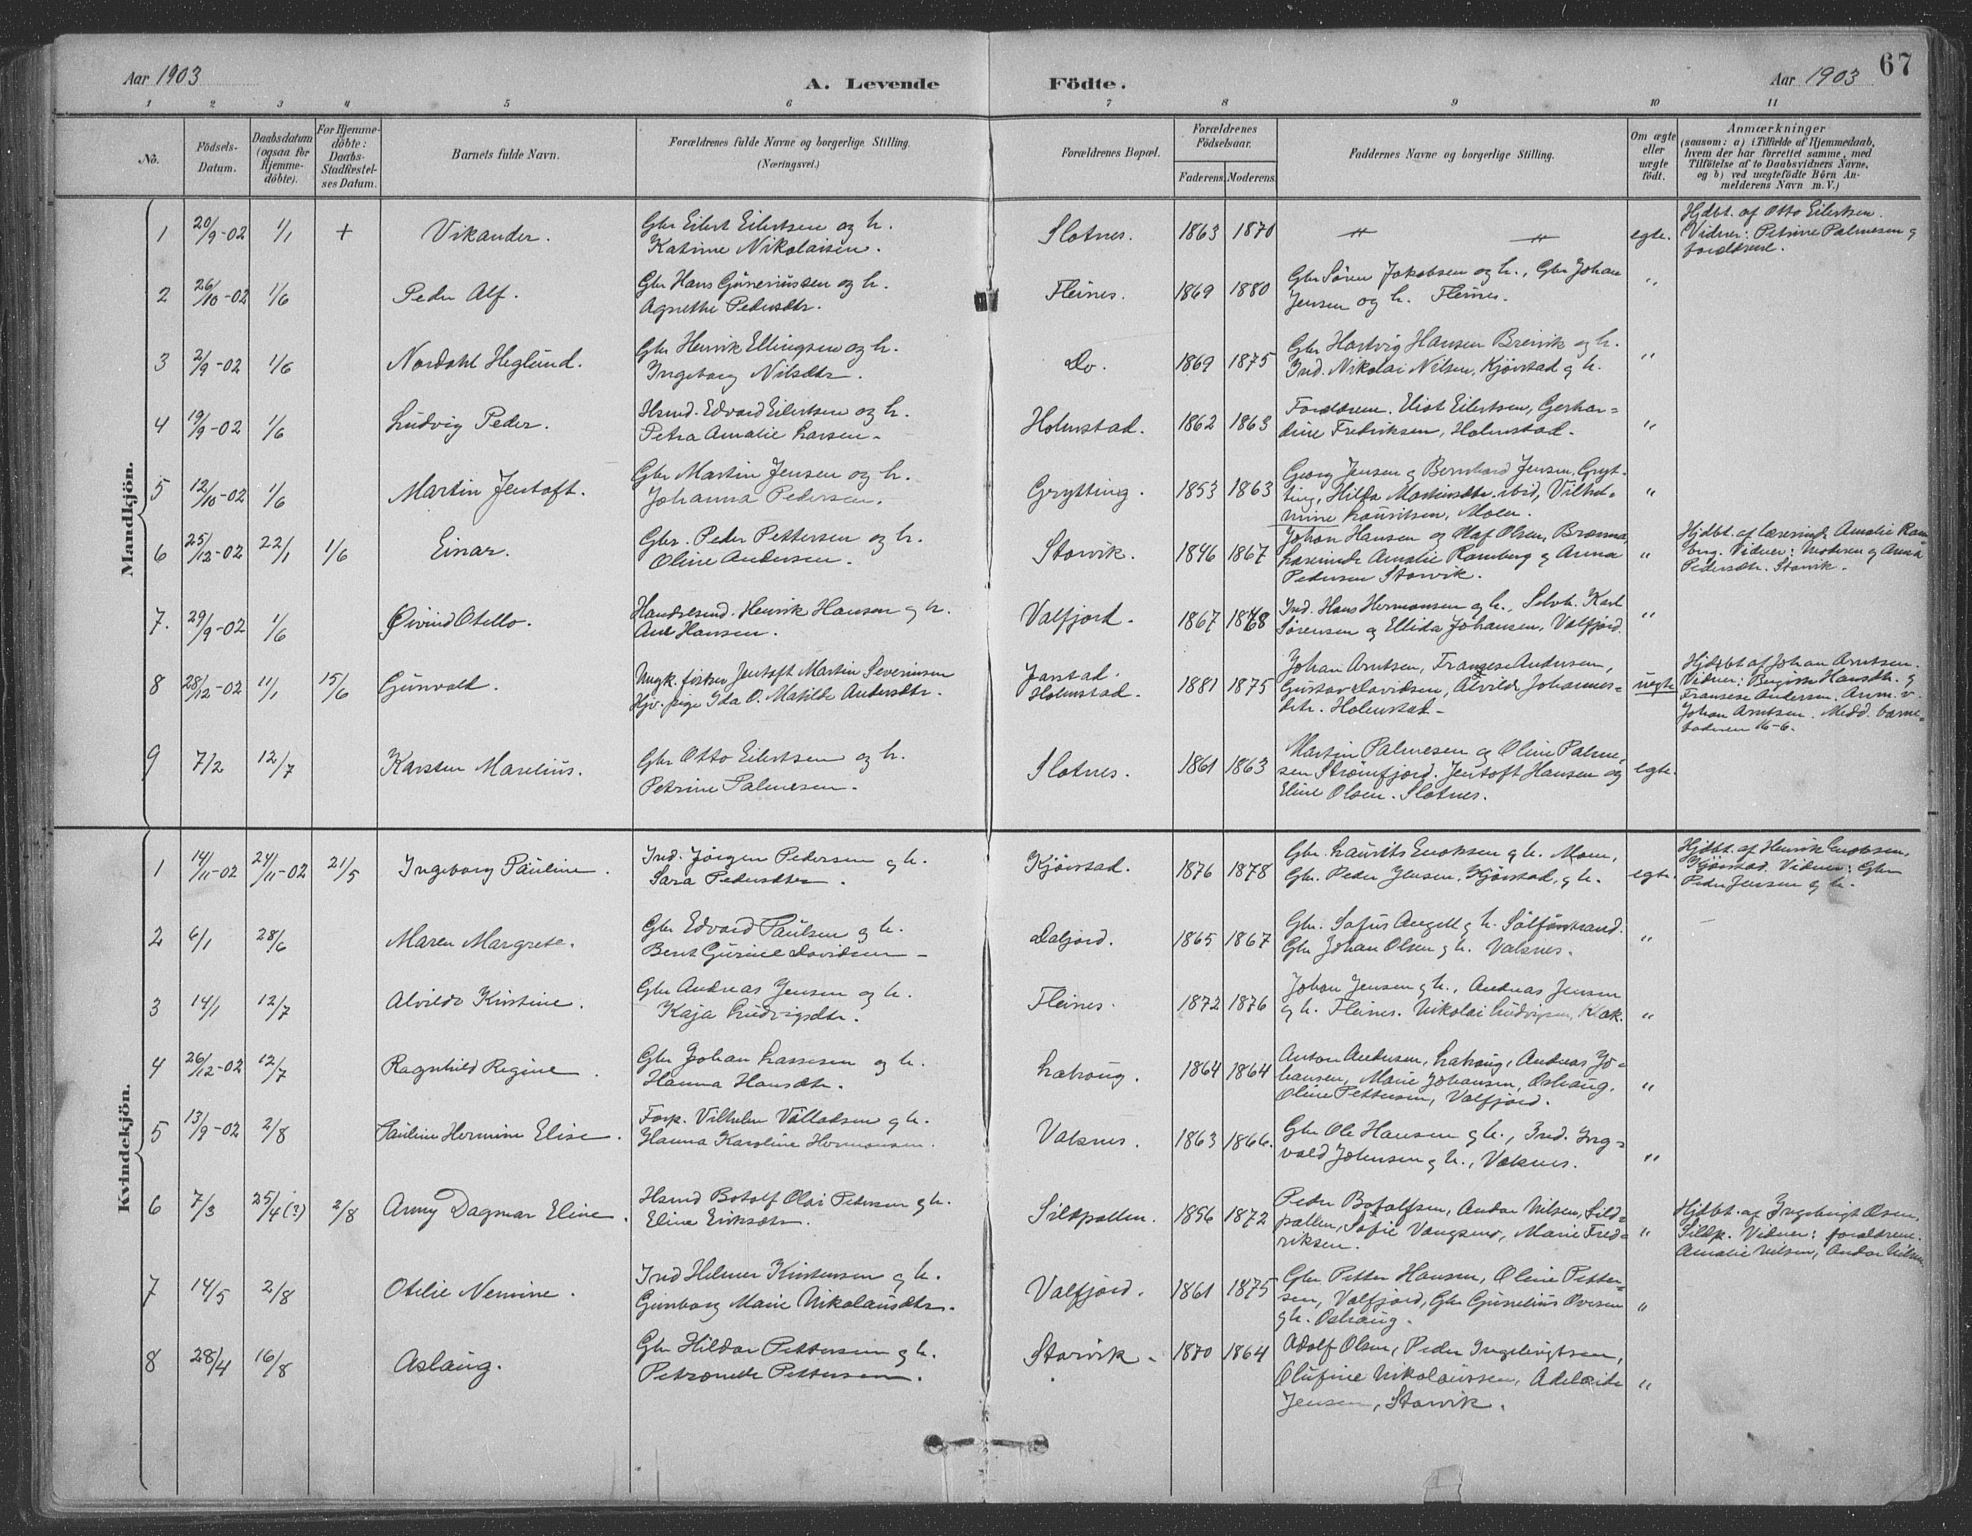 67
Aar 1903 A. Levende Födte. Aar 1903
1 2 3 4 5 6 7 8 9 10 11
No. Födsels-Datum. Daabsdatum (ogsaa for Hjemme-döbte). For Hjemme-döbte: Daabs-Stadfæstel-ses Datum. Barnets fulde Navn. Forældrenes fulde Navne og borgerlige Stilling. (Næringsvei.) Forældrenes Bopæl. Forældrenes Födselsaar. Faderens. Moderens. Faddernes Navne og borgerlige Stilling. Om ægte eller uægte födt. Anmærkninger (saasom: a) i Tilfælde af Hjemmedaab, hvem der har forrettet samme, med Tilföielse af to Daabsvidners Navne, og b) ved uægtefödte Börn Anmelderens Navn m. V.)
Mandkjön.
1 20/9-02 1/1 + Vikander. Gbr Eilert Eilertsen og h. Katrine Nikolaisen. Slotnes. 1863 1870 — " — " egte. Hjdbt. af Otto Eilertsen. Vidner: Petrine Palmesen g forældrene.
2 26/10-02 1/6 Peder Alf. Gbr Hans Guneriussen og h. Agnethe Pedersdtr. Fleines. 1869 1880 Gbr Sören Jakobsen og h., Gbr Johan Jensen og h. Fleines. "
3 2/9-02 1/6 Nordahl Heglund. Gbr Henrik Ellingsen og h. Ingeborg Nilsdtr. Do. 1869 1875 Gbr Hartvig Hansen Breivik og h. Ind. Nikolai Nilsen, Kjörstad g h. "
4 19/9-02 1/6 Ludvig Peder. Hsmd. Edvard Eilertsen og h. Petra Amalie Larsen. Holmstad. 1862 1863 Forældrene. Eliot Eilertsen, Gerhardine Fredriksen, Holmstad. "
5 12/10-02 1/6 Martin Jentoft. Gbr Martin Jensen og h. Johanna Pedersen. Grytting. 1853 1863 Georg Jensen g Bernhard Jensen, Grytting, Hilda Martinsdtr. ibid, Vilhelmine Lauritsen, Moen. "
6 25/12-02 22/1 1/6 Einar. Gbr. Peder Pettersen og h. Oline Andersen. Storvik. 1846 1867 Johan Hansen og Olaf Olsen, Læserinde Amalie Ramberg g Anna Pedersen Storvik. " Hjdbt. af læserinde Amalie Ramberg. Vidner: Moderen g Anna Pedersdtr. Storvik.
7. 29/9-02 1/6 Øivind Otello. Handelsmd. Henrik Hansen g h. Ane Hansen. Valfjord. 1867 1868 Ind. Hans Hermansen g h., Selvh. Karl Sörensen g Ellida Johansen, Valfjord. "
8 28/12-02 11/1 15/6 Gunvald. Ungk. fisker Jentoft Martin Severinsen Hjv. pige Ida O. Matilde Andersdtr. Jørstad. Holmstad. 1881 1875 Johan Arntsen, Fransese Andersen, Gustav Davidsen, Alvilde Johannesdtr. Holmstad. uegte Hjdbt af Johan Arntsen. Vidner: Hansdtr. g Fransese Andersen. Anm. v. Johan Arntsen. Medd. barnefaderen 16-6.
9 7/2 12/7 Karsten Marelius. Gbr Otto Eilertsen og h. Petrine Palmesen. Slotnes. 1861 1863 Martin Palmesen g Oline Palmesen Strömfjord. Jentoft Hansen og Eline Olsen. Slotnes. egte.
Kvindekjön.
1 14/11-02 24/11-02 21/5 Ingeborg Pauline. Ind. Jörgen Pedersen g h. Sara Pedersdtr. Kjörstad. 1876 1878 Gbr. Laurits Enoksen g h. Moen, Gbr. Peder Jensen, Kjörstad, g h. egte. Hjdbt. af Henrik Enoksen, Kjörstad. Vidner: Gbr Peder Jensen g h.
2 6/1 28/6 Maren Margrete. Gbr Edvard Paulsen og h. Berit Gurine Davidsen. Daljord. 1865 1867 Gbr. Sofus Angell g h. Gbr Johan Olsen g h. Valsnes. "
3 14/1 12/7 Alvilde Kirstine. Gbr Andreas Jensen og h. Kaja Ludvigsdtr. Fleines. 1872 1876 Johan Jensen g h., Andreas Jensen g h. Fleines. Nikolai Ludvigsen, "
4 26/12-02 12/7 Ragnhild Regine. Gbr Johan Lassesen og h. Hanna Hansdtr. Lahaug. 1864 1864 Anton Andersen, Lahaug, Andreas Johansen, Marie Johansen, Oshaug. Oline Pettersen, Valfjord. "
5 13/9-02 2/8 Pauline Hermine Elise. Forp. Vilhelm Valladsen g h. Hanna Karoline Hermansen. Valsnes. 1863 1866. Gbr Ole Hansen g h., Ind. Ingvald Johnsen g h., Valsnes. "
6 7/3 25/4(?) 2/8 Anny Dagmar Eline. Hsmd Botolf Olai Pedersen g h. Elina Eriksdtr. Sildpollen. 1856 1872 Peder Botolfsen, Andor Nilsen, Sildpollen, Sofie Vangsmo, Marie Fredriksen. " Hjdbt. af Ingebrigt Olsen, Sildp. Vidner: forældrene. Amalie Nilsen, Andor Nilsen
7 14/5 2/8 Otelie Nemine. Ind Helmer Kristensen g h. Gunborg Marie Nikolaisdtr. Valfjord. 1861 1875 Gbr Petter Hansen, Oline Pettersen, Valfjord, Gbr Gunelius Ovesen g h. Oshaug. "
8 28/4 16/8 Aslaug. Gbr Hildor Pettersen g h. Petronelle Pettersen. Storvik. 1870 1864 Adolf Olsen, Peder Ingebrigtsen, Olufine Nikolaissen, Adelaide Jensen, Storvik. "